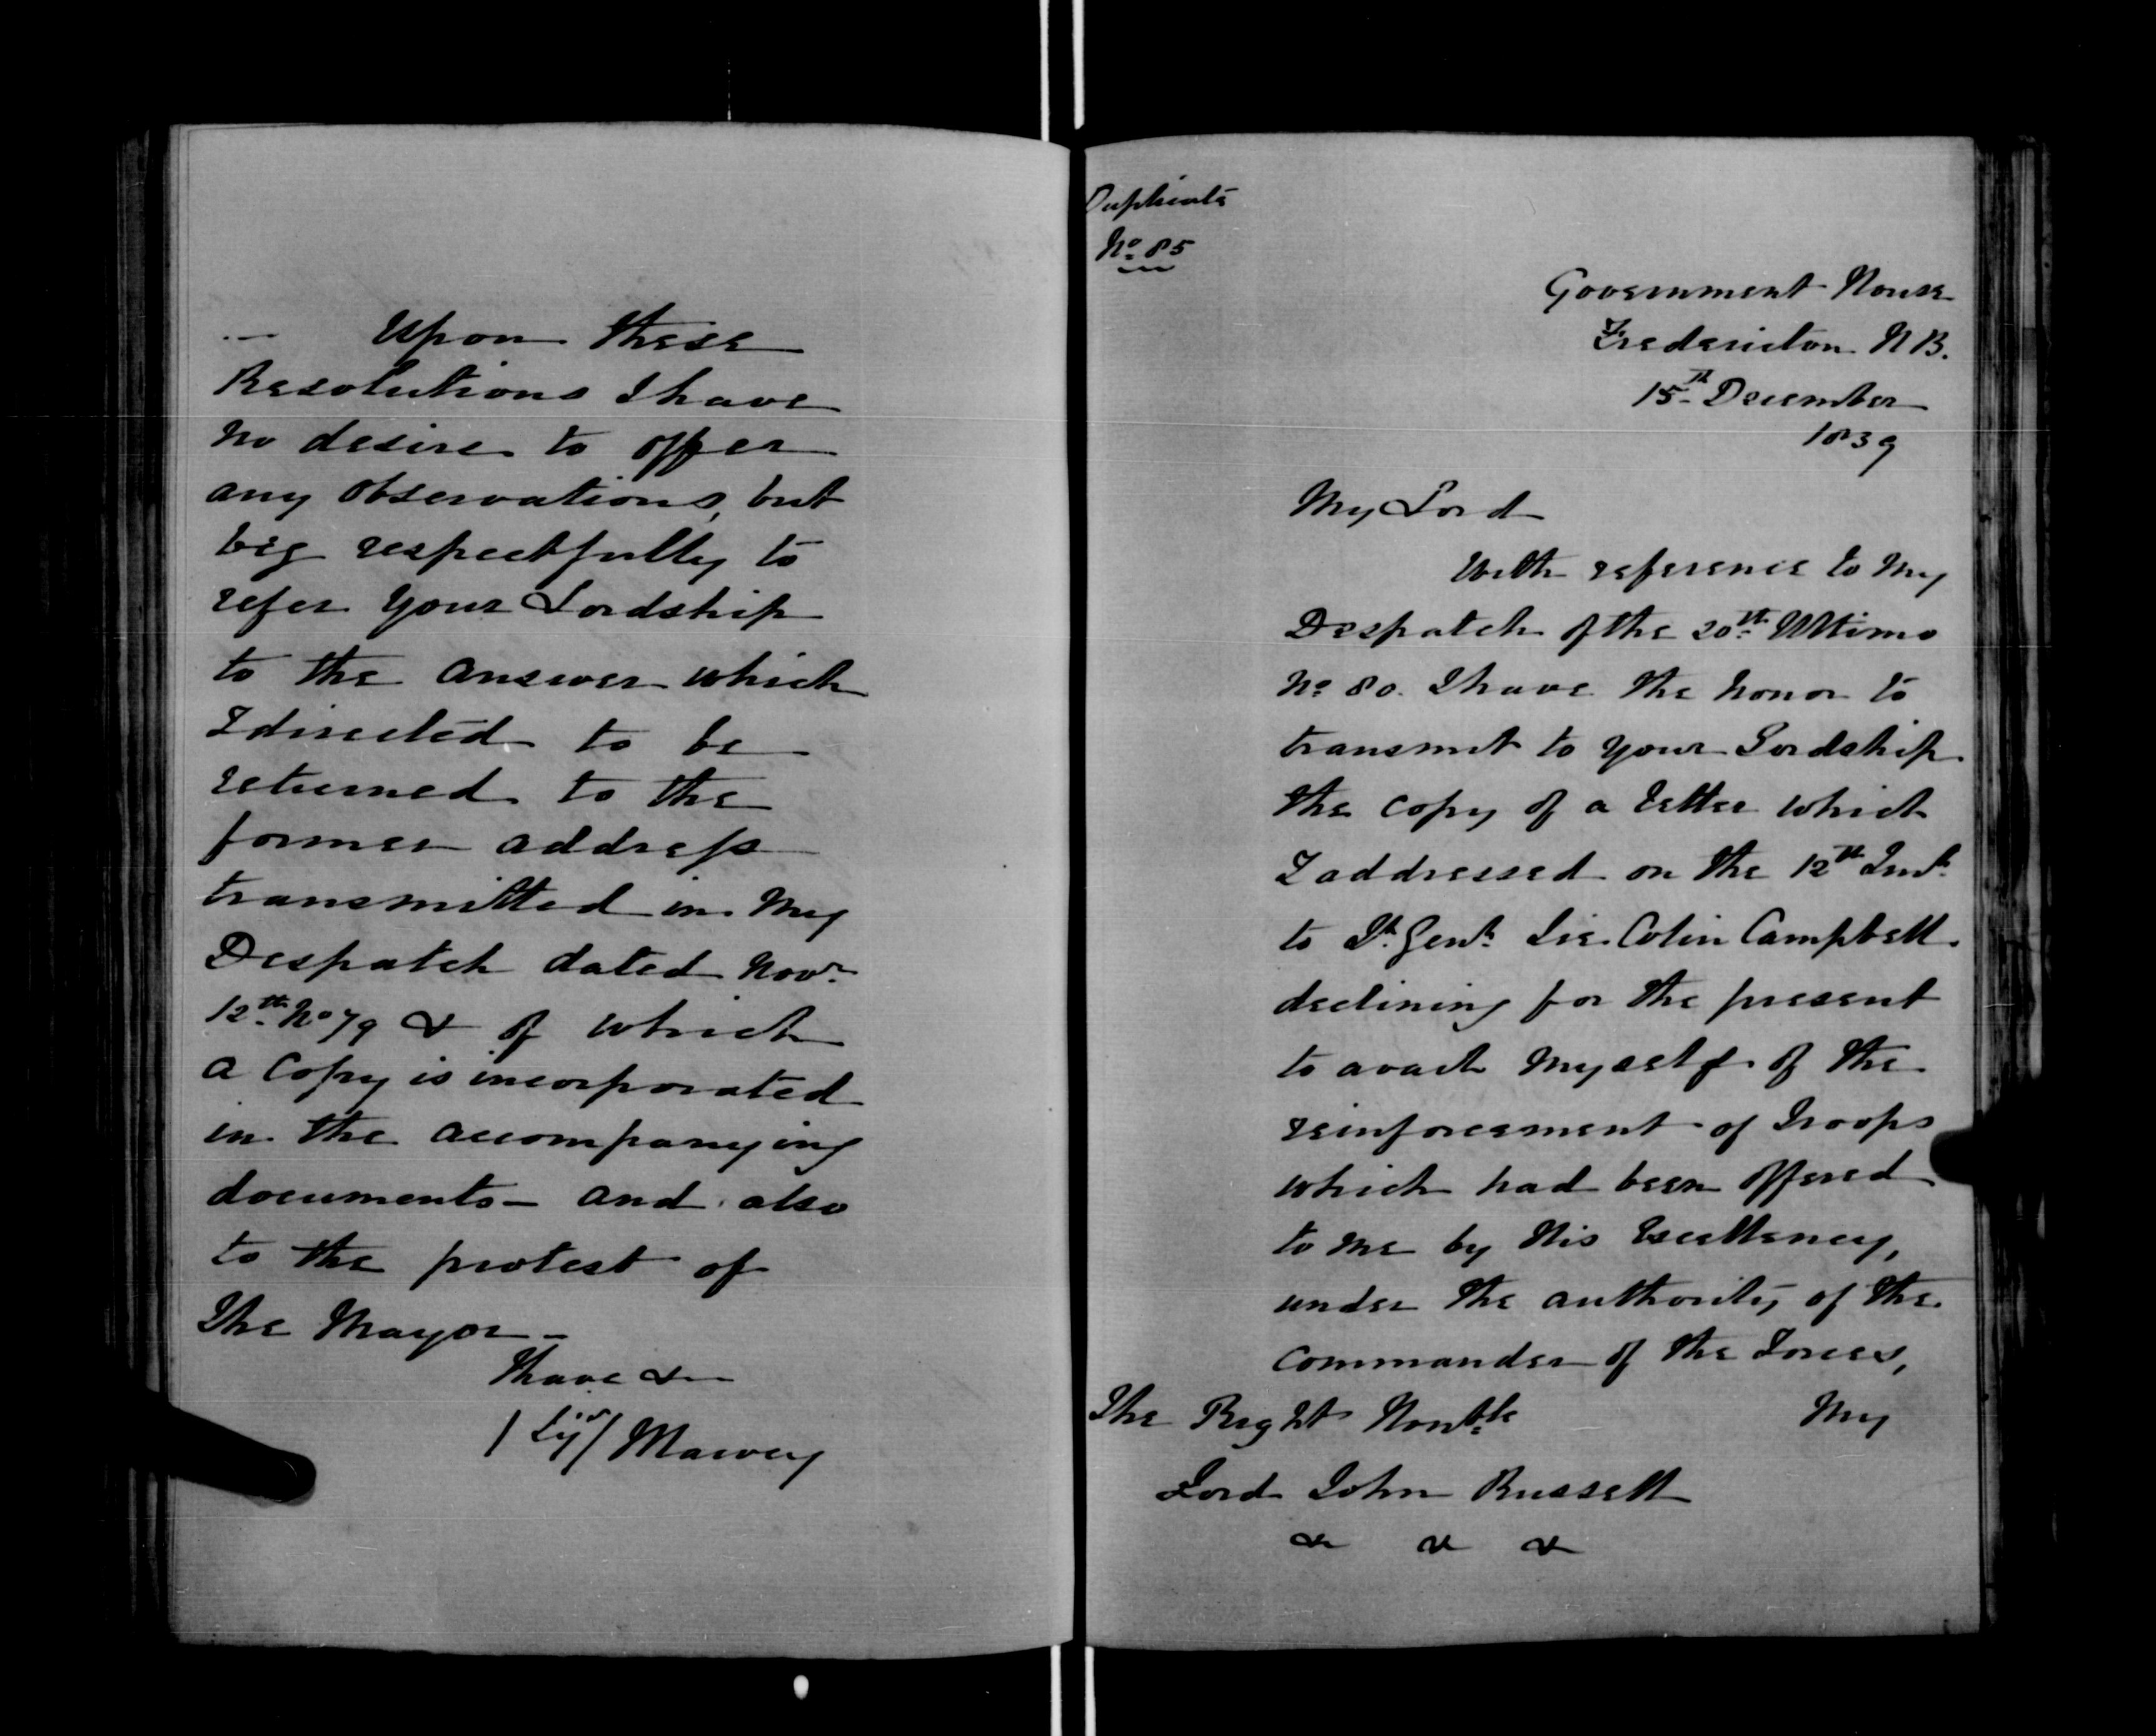 Upon these
Resolutions I have
no desire to offer
any observations, but
beg respectfully to
refer Your Lordship
to the answer which
I directed to be
returned to the
former address
transmitted in my
Despatch dated Novr
12th No 79 & of which
a Copy is incorporated
in the accompanying
documents - and also
to the protest of
the Mayor -
I have &c
Harvey
Duplicate
No 85
Government House
Fredericton N B.
15th December
1839
My Lord
With reference to my
Despatch of the 20th Ultimo
No 80. I have the honor to
transmit to your Lordship
the copy of a letter which
I addressed on the 12th Inst
to Lt Genl Sir Colin Campbell
declining for the present
to avail myself of the
reinforcement of Troops
which had been offered
to me by His Excellency,
under the authority of the
Commander of the Forces,
My
The Right Honble
Lord John Russell
& & &